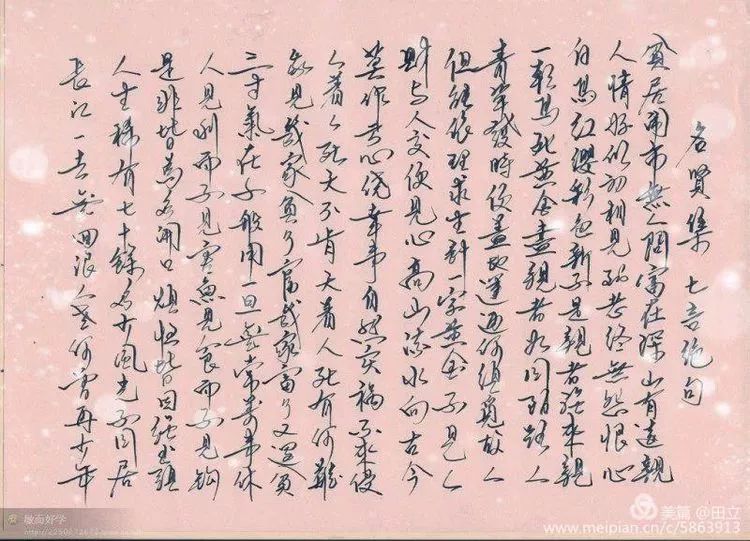 名賢集 七言绝句
貧居鬧市無人問富在深山有遠親
人情好似初相見到老終無怨恨心
白馬紅纓彩色新不是親者強來親
一朝馬死黃金盡親者如同陌路人
青草發時便蓋地運通何須覓故人
但能依理求生計一字黃金不見人
財與人交便見心高山流水向古今
莫作虧心僥幸事自然災禍不來侵
人着人死天不肯天着人死有何難
我見幾家貧了富幾家富了又還貧
三寸氣在千般用一旦無常萬事休
人見利而不見害魚見食而不見鈎
是非皆為多開口煩惱皆因強出頭
人生稀有七十餘多少風光不同居
長江一去無回浪人老何曾再少年
墩而好学
美篇 @田立
www.meipian.cn/c/5863913